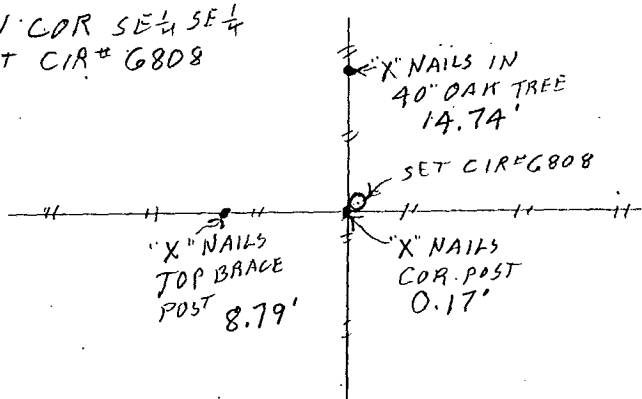 COR SE¼ SE¼
CIR# 6808
"X" NAILS IN
40" OAK TREE
14.74'
SET CIR#6808
"X" NAILS
TOP BRACE
POST 8.79'
"X" NAILS
COR. POST
0.17'